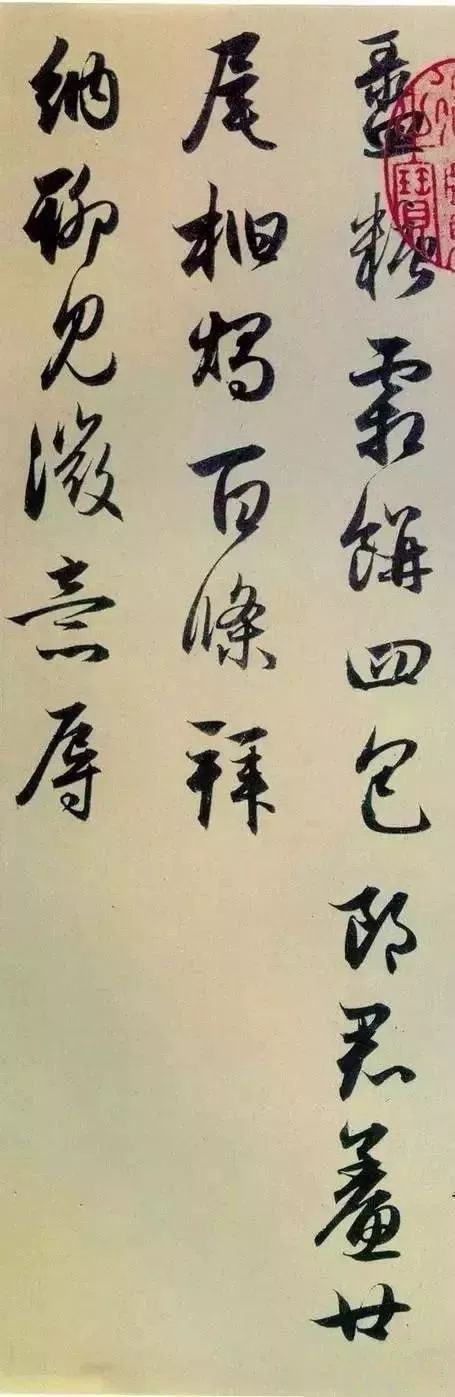 糖霜餅四包郎君鯗廿
尾桕燭百條拜
納聊見微意辱